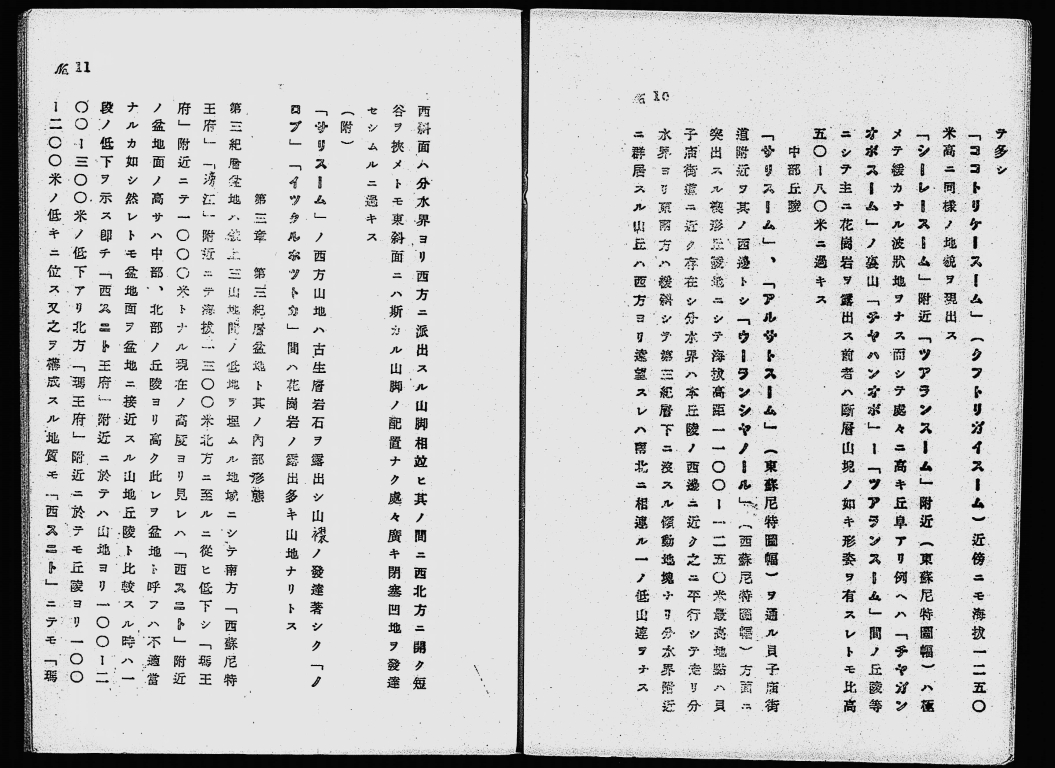 № 10
テ多シ
「ココトリケースーム」(クフトリガイスーム)近傍ニモ海拔一二五〇
米高ニ同樣ノ地貌ヲ現出ス
「シーレースーム」附近「ツアランスーム」附近(東蘇尼特圖幅)ハ極
メテ緩カナル波狀地ヲナス而シテ處々ニ高キ丘阜アリ例ヘハ「チヤガン
オボスーム」ノ裏山「チヤハンオボ」ー「ツアランスーム」間ノ丘陵等
ニシテ主ニ花崗岩ヲ露出ス前者ハ斷層山塊ノ如キ形姿ヲ有スレトモ比高
五〇ー八〇米ニ過キス
中部丘陵
「サリスーム」、「アルサトスーム」(東蘇尼特圖幅)ヲ通ル貝子庙街
道附近ヲ其ノ西邊トシ「ウーランシヤノール」(西蘇尼特圖幅)方面ニ
突出スル楔形丘陵地ニシテ海拔高距一一〇〇ー一二五〇米最高地點ハ貝
子庙街道ニ近ク存在シ分水界ハ本丘陵ノ西邊ニ近ク之ニ平行シテ走リ分
水界ヨリ東南方ハ緩斜シテ第三紀層下ニ沒スル傾動地塊ナリ分水界附近
ニ群居スル山丘ハ西方ヨリ遠望スレハ南北ニ相連ル一ノ低山連ヲナス
№ 11
西斜面ハ分水界ヨリ西方ニ派出スル山脚相竝ヒ其ノ間ニ西北方ニ開ク短
谷ヲ挾メトモ東斜面ニハ斯カル山脚ノ配置ナク處々廣キ閉塞凹地ヲ發達
セシムルニ過キス
(附)
「サリスーム」ノ西方山地ハ古生層岩石ヲ露出シ山襞ノ發達著シク「ノ
ロブ」「イツクルホツトカ」間ハ花崗岩ノ露出多キ山地ナリトス
第三章 第三紀層盆地ト其ノ內部形態
第三紀層盆地ハ敍上三山地間ノ低地ヲ埋ムル地域ニシテ南方「西蘇尼特
王府」「滂江」附近ニテ海拔一三〇〇米北方ニ至ルニ從ヒ低下シ「瑪王
府」附近ニテ一〇〇〇米トナル現在ノ高度ヨリ見レハ「西スニト」附近
ノ盆地面ノ高サハ中部、北部ノ丘陵ヨリ高ク此レヲ盆地ト呼フハ不適當
ナルカ如シ然レトモ盆地面ヲ盆地ニ接近スル山地丘陵ト比較スル時ハ一
段ノ低下ヲ示ス卽チ「西スニト王府」附近ニ於テハ山地ヨリ一〇〇ー二
〇〇ー三〇〇米ノ低下アリ北方「瑪王府」附近ニ於テモ丘陵ヨリ一〇〇
ー二〇〇米ノ低キニ位ス又之ヲ構成スル地質モ「西スニト」ニテモ「瑪